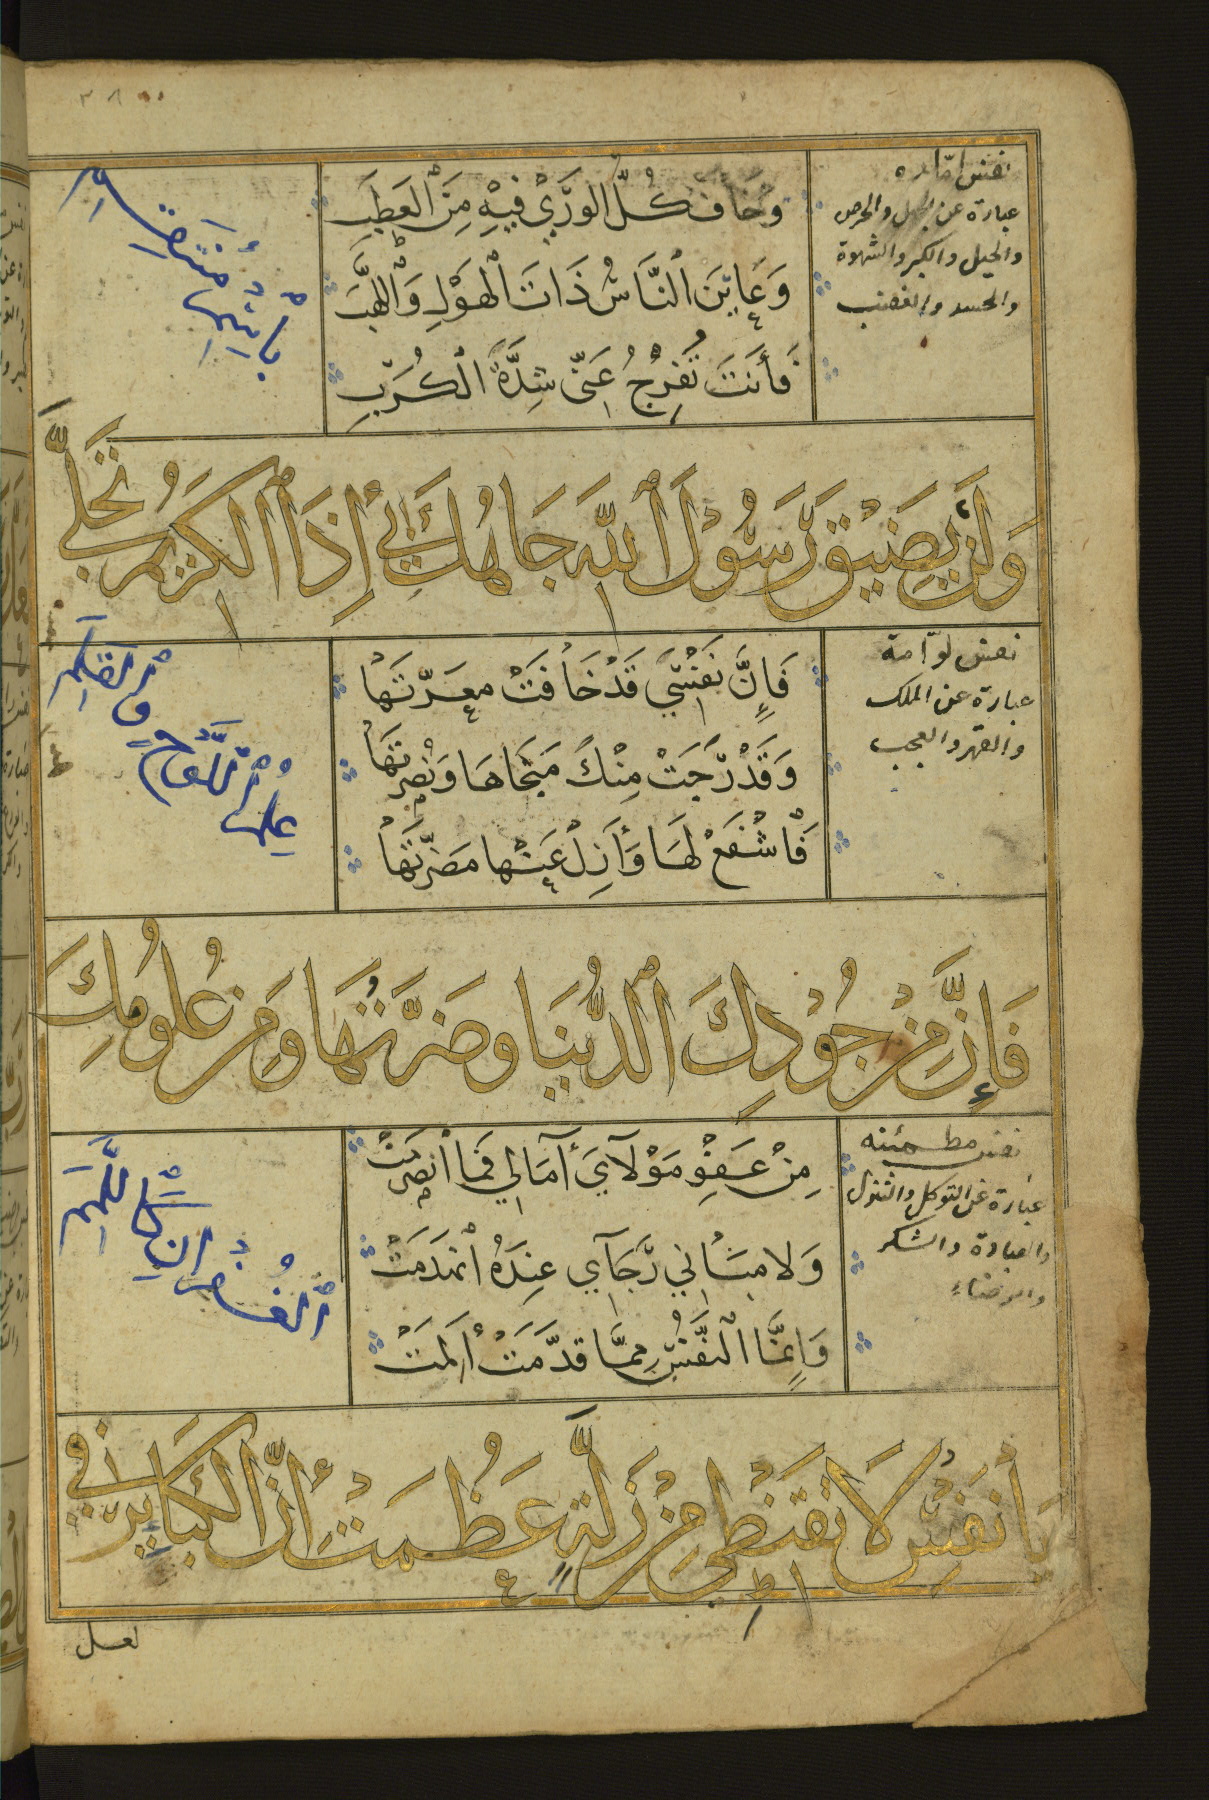 ٣٨
نفس امّاره
عبارة عن الجهل والحرص
والحيل والكبر والشهوة
والحسد والغضب
وَخَافَ كُلُّ الْوَرٰى فِيْهِ مِنَ الْعَطَبِ
وَعَايَنَ النَّاسُ ذَاتَ الْهَوْلِ وَاللَّهَبِ
فَأَنْتَ تُفَرِّجُ عَنّى شِدَّةَ الْكُرَبِ
بِاسْمِ مُنْتَقِمِ
وَلَنْ يَضِيْقَ رَسُوْلَ اللهِ جَاهُكَ بِى إِذَا الْكَرِيْمُ تَحَلَّى
نفس لوّامة
عبارة عن الملك
والقهر والعجب
فَإِنَّ نَفْسِيَ قَدْ خَافَتْ مَعَرَّتَهَا
وَقَدْ رَجَتْ مِنْكَ مَنْجَاهَا وَنُصْرَتَهَا
فَاشْفَعْ لَهَا وَأَزِلْ عَنْهَا مَضَرَّتَهَا
عِلْمَ اللَّوْحِ وَالْقَلَمِ
فَإِنَّ مِنْ جُوْدِكَ الدُّنْيَا وَضَرَّتَهَا وَمِنْ عُلُوْمِكَ
نفس مطمئنه
عبارة عن التوكل والتذلل
والعبادة والشكر
والرضاء
مِنْ عَفْوِ مَوْلَايَ أٰمَالِي فَمَا انْصَرَمَتْ
وَلَا مَبَانِي رَجَآىِٔ عِنْدَهُ انْهَدَمَتْ
وَإِنَّمَا النَّفْسُ مِمَّا قَدَّمَتْ أَلِمَتْ
الْغُفْرَانِ كَاللَّمَمِ
يَا نَفْسُ لَا تَقْنَطِي مِنْ زَلَّةٍ عَظُمَتْ إِنَّ الْكَبَائِرَ فِي
لعل